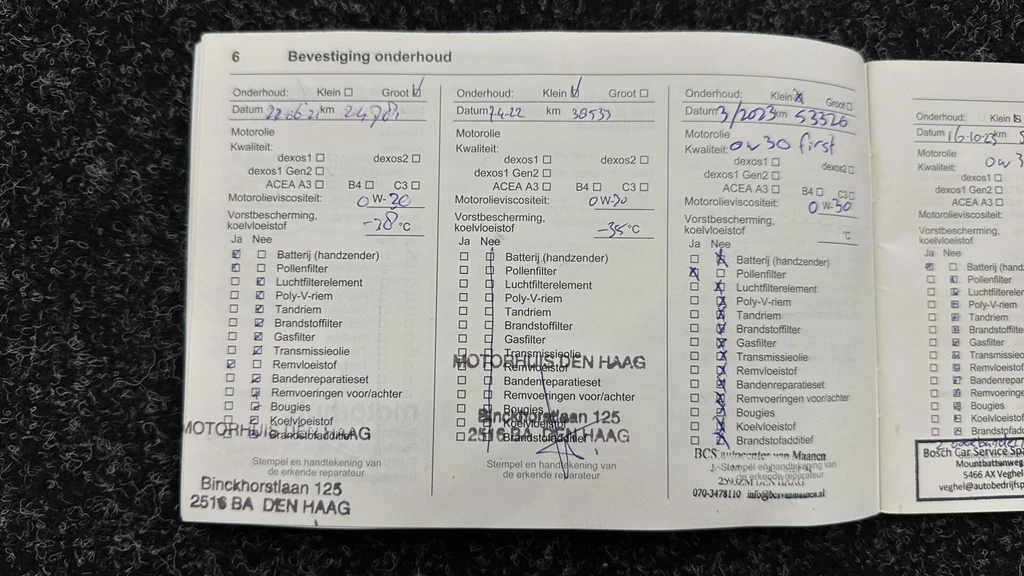 6 Bevestiging onderhoud
Onderhoud: Klein Groot
Datum 22-6-21 km 24781
Motorolie
Kwaliteit:
dexos1 dexos2
dexos1 Gen2
ACEA A3 B4 C3
Motorolieviscositeit: 0 W-20
Vorstbescherming,
koelvloeistof -38 °C
Ja Nee
Batterij (handzender)
Pollenfilter
Luchtfilterelement
Poly-V-riem
Tandriem
Brandstoffilter
Gasfilter
Transmissieolie
Remvloeistof
Bandenreparatieset
Remvoeringen voor/achter
Bougies
Koelvloeistof
Brandstofadditief
MOTORHUIS DEN HAAG
Stempel en handtekening van
de erkende reparateur
Binckhorstlaan 125
2516 BA DEN HAAG
Onderhoud: Klein Groot
Datum 7-4-22 km 38533
Motorolie
Kwaliteit:
dexos1 dexos2
dexos1 Gen2
ACEA A3 B4 C3
Motorolieviscositeit: 0 W-20
Vorstbescherming,
koelvloeistof -35 °C
Ja Nee
Batterij (handzender)
Pollenfilter
Luchtfilterelement
Poly-V-riem
Tandriem
Brandstoffilter
Gasfilter
Transmissieolie
MOTORHUIS DEN HAAG
Remvloeistof
Bandenreparatieset
Remvoeringen voor/achter
Bougies
Binckhorstlaan 125
Koelvloeistof
2516 BA DEN HAAG
Brandstofadditief
Stempel en handtekening van
de erkende reparateur
Onderhoud: Klein Groot
Datum 3/2023 km 53320
Motorolie
Kwaliteit: 0w30 first
dexos1 dexos2
dexos1 Gen2
ACEA A3 B4 C3
Motorolieviscositeit: 0 W-30
Vorstbescherming,
koelvloeistof °C
Ja Nee
Batterij (handzender)
Pollenfilter
Luchtfilterelement
Poly-V-riem
Tandriem
Brandstoffilter
Gasfilter
Transmissieolie
Remvloeistof
Bandenreparatieset
Remvoeringen voor/achter
Bougies
Koelvloeistof
Brandstofadditief
BCS autocenter van Maanen
Stempel en handtekening van
de erkende reparateur
DEN HAAG
070-3478110 info@bcsvanmaanen.nl
Onderhoud: Klein
Datum 16-10-23 km
Motorolie
Kwaliteit: 0w3
dexos1
dexos1 Gen2
ACEA A3
Motorolieviscositeit:
Vorstbescherming,
koelvloeistof
Ja Nee
Batterij (hand
Pollenfilter
Luchtfilterelem
Poly-V-riem
Tandriem
Brandstoffilte
Gasfilter
Transmissieo
Remvloeistof
Bandenrepara
Remvoeringen
Bougies
Koelvloeistof
Brandstofadd
Bosch Car Service Spa
Mountbattenweg
5466 AX Veghel
veghel@autobedrijfsp